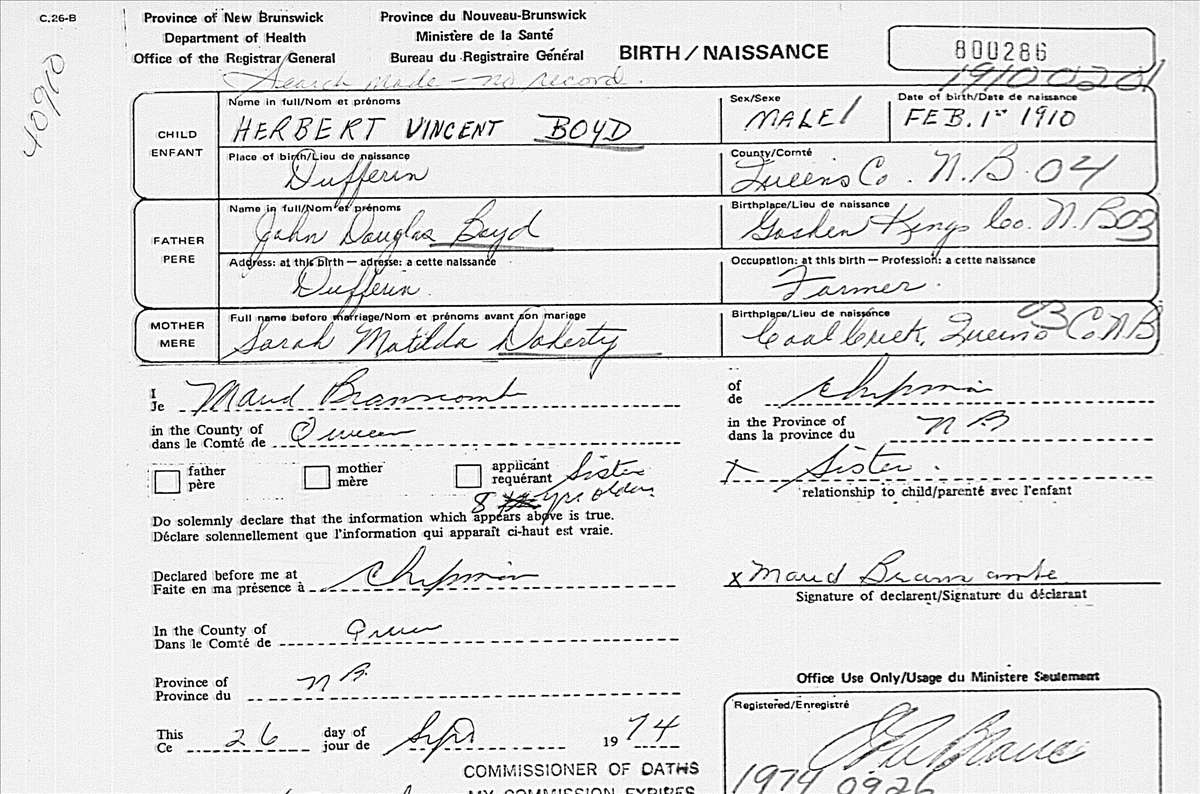 C.26-B
Province of New Brunswick
Department of Health
Office of the Registrar General
Province du Nouveau-Brunswick
Ministère de la Santé
Bureau du Registraire Général
BIRTH / NAISSANCE
800286
19100201
Search made - no record.
40910
CHILD
ENFANT
Name in full/Nom et prénoms
HERBERT VINCENT BOYD
Sex/Sexe
MALE 1
Date of birth/Date de naissance
FEB. 1st 1910
Place of birth/Lieu de naissance
Dufferin
County/Comté
Queens Co. N.B. 04
FATHER
PERE
Name in full/Nom et prénoms
John Douglas Boyd
Birthplace/Lieu de naissance
Goshen Kings Co. N.B 03
Address: at this birth — adresse: a cette naissance
Dufferin.
Occupation: at this birth — Profession: a cette naissance
Farmer.
MOTHER
MERE
Full name before marriage/Nom et prénoms avant son mariage
Sarah Matilda Doherty
Birthplace/Lieu de naissance
03
Coal Creek, Queens Co N.B
I
Je Maud Branscombe
of
de Chipman
in the County of
dans le Comté de Queen
in the Province of
dans la province du N B
father
père
mother
mère
applicant
requérant Sister
8 yrs older
x Sister.
relationship to child/parenté avec l'enfant
Do solemnly declare that the information which appears above is true.
Déclare solennellement que l'information qui apparaît ci-haut est vraie.
Declared before me at
Faite en ma présence à Chipman
x Maud Branscombe
Signature of declarent/Signature du déclarant
In the County of
Dans le Comté de Queen
Province of
Province du N B.
Office Use Only/Usage du Ministere Seulement
Registered/Enregistré
This
Ce 26
day of
jour de Sept
1974
1974 0926
COMMISSIONER OF OATHS
MY COMMISSION EXPIRES